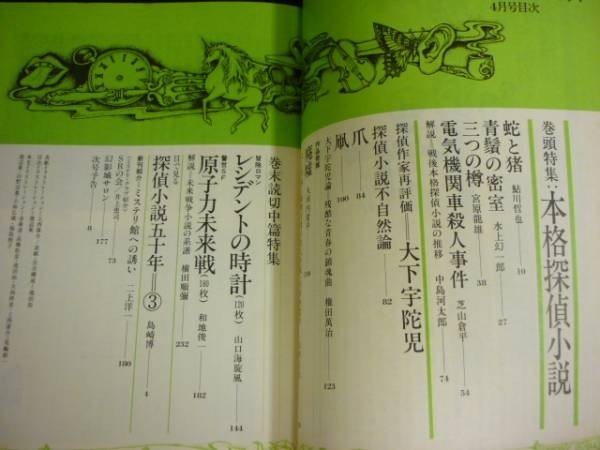 4月号目次
巻頭特集:本格探偵小説
蛇と猪 鮎川哲也 10
青鬚の密室 水上幻一郎 27
三つの樽 宮原龍雄 38
電気機関車殺人事件 芝山倉平 54
解説—戦後本格探偵小説の推移 中島河太郎 74
探偵作家再評価—大下宇陀児
探偵小説不自然論 82
爪 84
凧 100
大下宇陀児論—残酷な青春の鎮魂曲 権田萬治 123
作品解題
巻末読切中篇特集
冒険ロマン
レシデントの時計(120枚) 山口海旋風 144
原子力未来戦(180枚) 和地俊一 182
解説・未来戦争小説の系譜 横田順彌 232
目で見る
探偵小説五十年—③ 島崎博 4
新刊紹介—ミステリ館への誘い 二上洋一 180
SRの会 73
幻影城サロン 177
次号予告 8